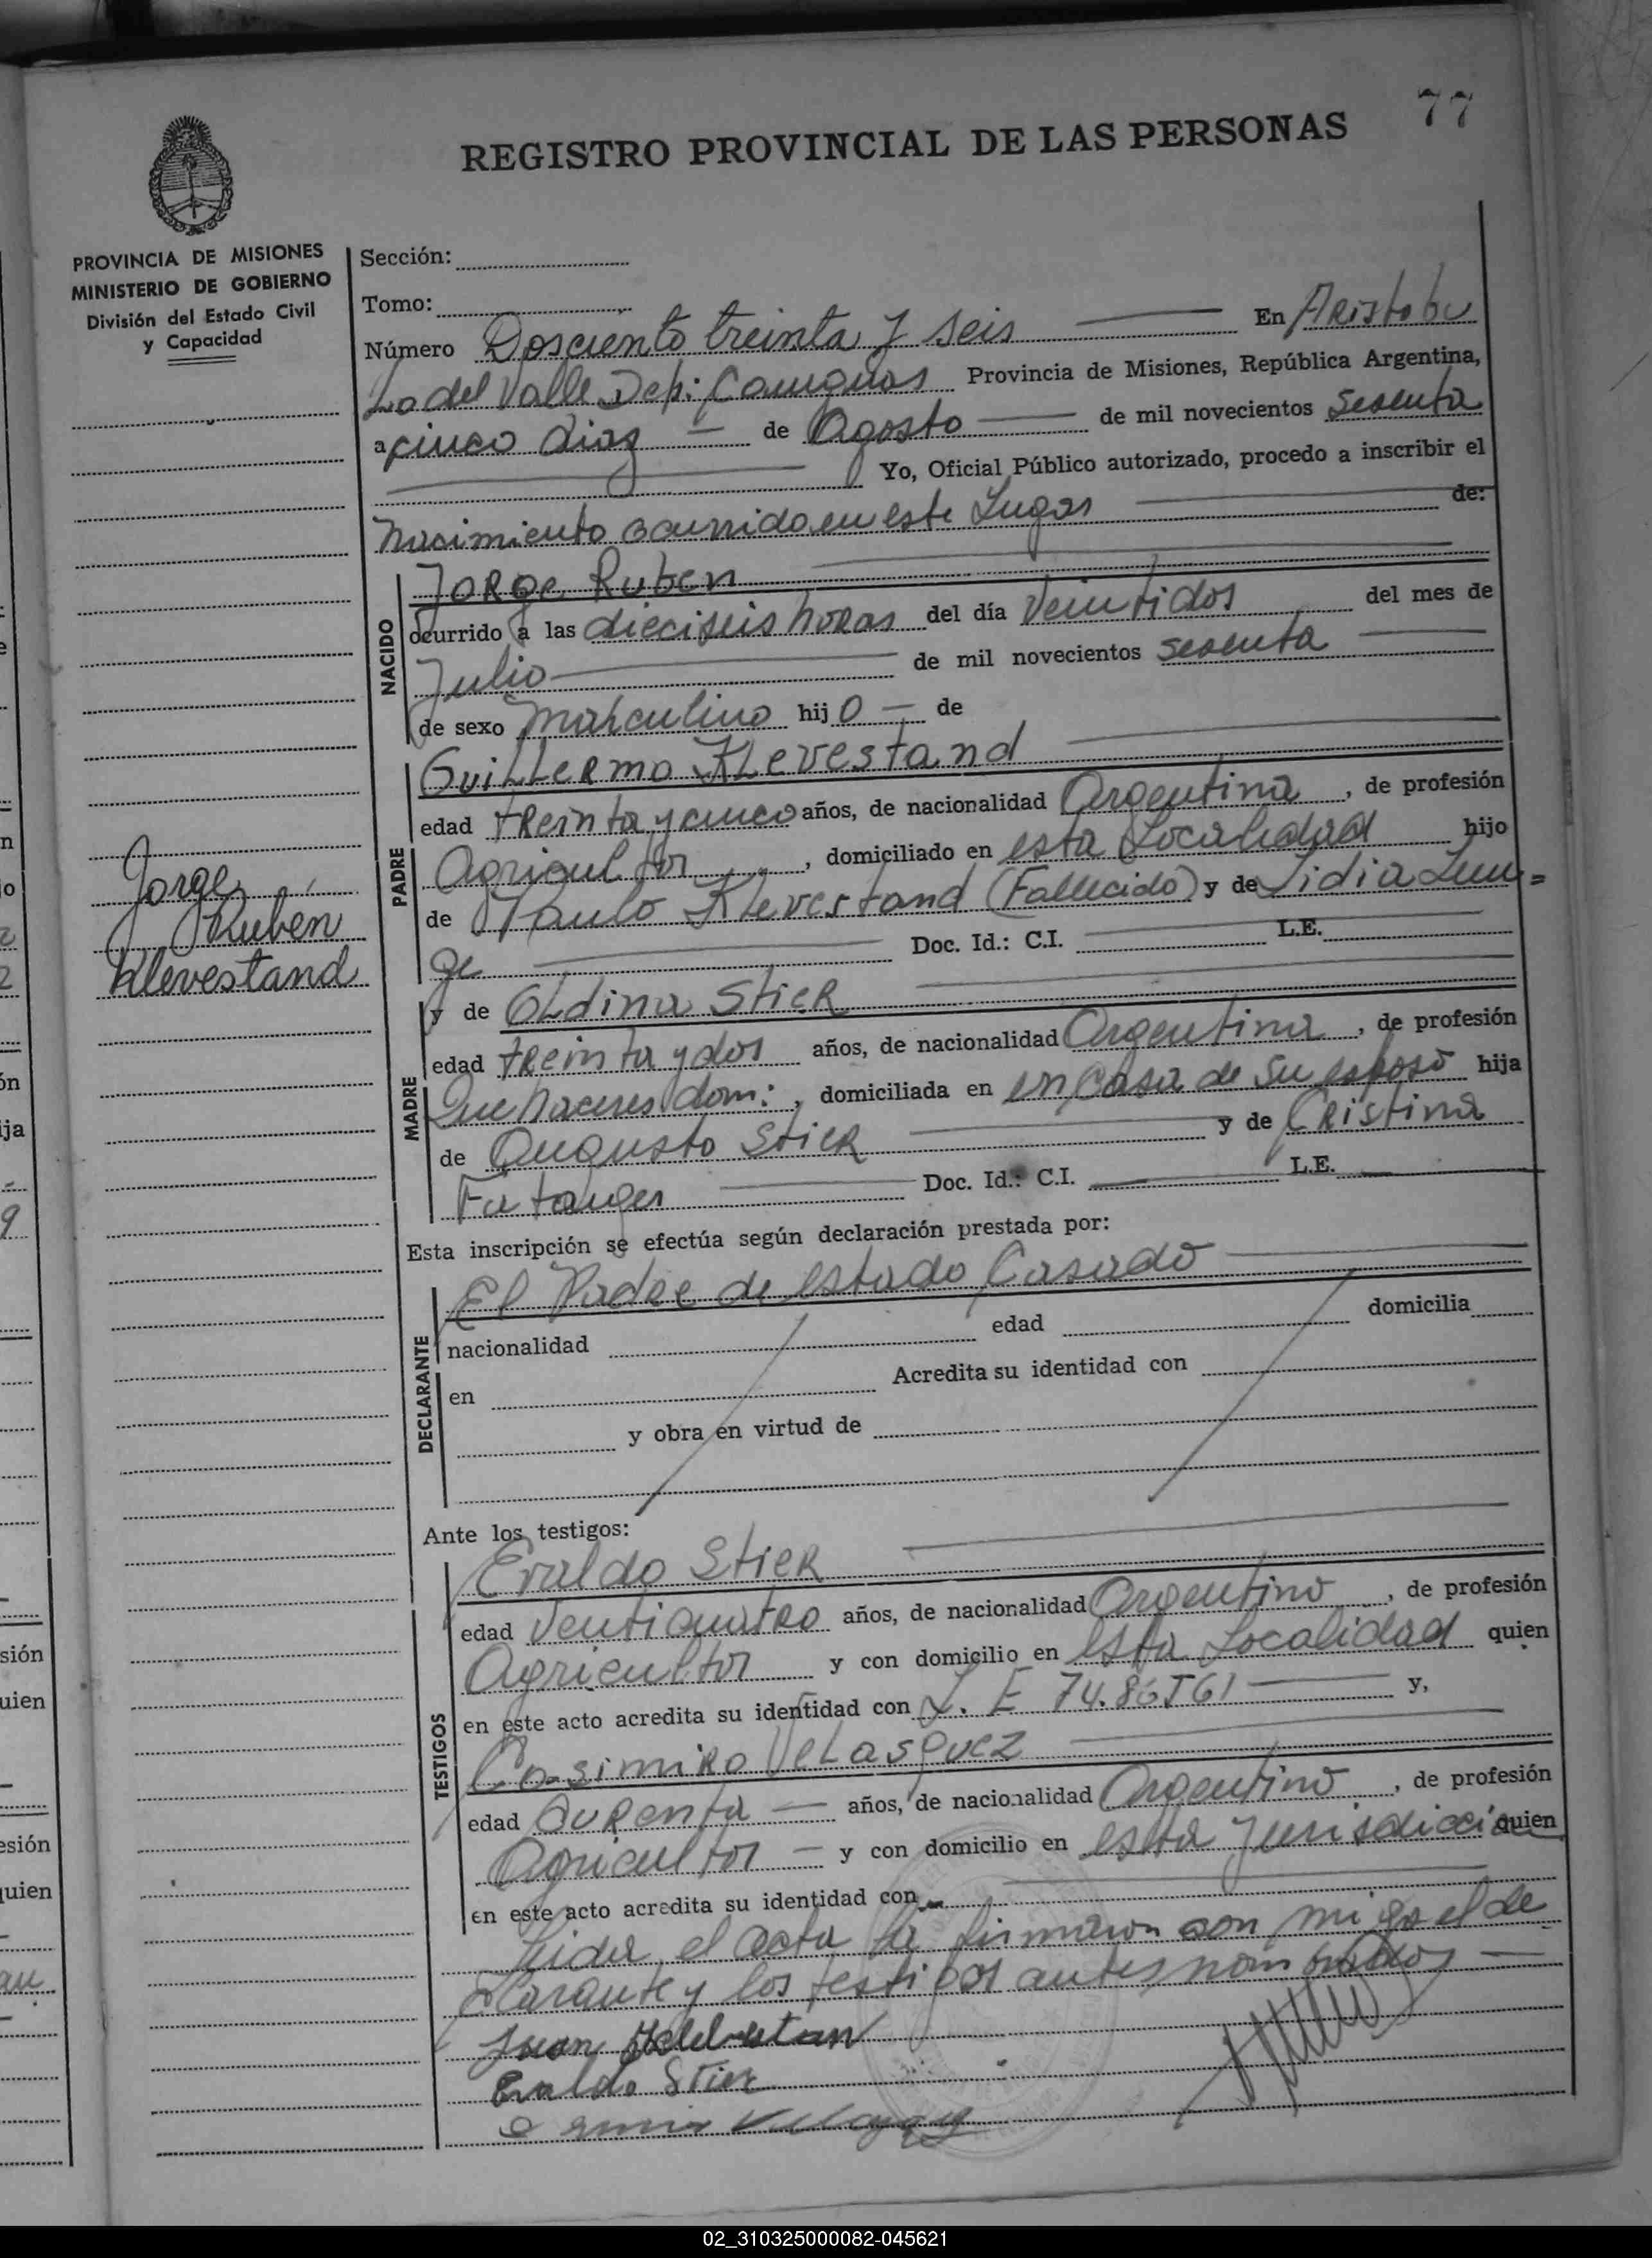 77
REGISTRO PROVINCIAL DE LAS PERSONAS
PROVINCIA DE MISIONES
MINISTERIO DE GOBIERNO
División del Estado Civil
y Capacidad
Sección:
Tomo:
Número Dosciento treinta y seis En Aristobu
Lo del Valle Dep: Caınguas Provincia de Misiones, República Argentina,
a cinco dias de Agosto de mil novecientos sesenta
Yo, Oficial Público autorizado, procedo a inscribir el
Nacimiento ocurrido en este Lugar de:
NACIDO
Jorge Ruben
ocurrido a las dieciseis horas del día Veintidos del mes de
Julio de mil novecientos sesenta
de sexo masculino hijo de
PADRE
Guillermo Klevestand
edad treinta y cinco años, de nacionalidad Argentina, de profesión
Agricultor, domiciliado en esta Localidad hijo
de Paulo Klevestand (Fallecido) y de Lidia Lun=
ge Doc. Id.: C.I. L.E.
Jorge
Ruben
Klevestand
MADRE
y de Oldina Stier
edad treinta y dos años, de nacionalidad Argentina, de profesión
Quehaceres dom:, domiciliada en en casa de su esposo hija
de Augusto Stier y de Cristina
Doc. Id.: C.I. L.E.
Esta inscripción se efectúa según declaración prestada por:
DECLARANTE
El Padre de estado Casado
nacionalidad edad domicilia
en Acredita su identidad con
y obra en virtud de
Ante los testigos:
TESTIGOS
Eraldo Stier
edad Venticuatro años, de nacionalidad Argentino, de profesión
Agricultor y con domicilio en esta Localidad quien
en este acto acredita su identidad con L. E y,
Casimiro Velasquez
edad Curenta años, de nacionalidad Argentino, de profesión
Agricultor y con domicilio en esta Jurisdiccion quien
en este acto acredita su identidad con
Leida el acta la firmaron con migo el de
clarante y los testigos antes nombrados
Juan
Eraldo Stier
02_310325000082-045621